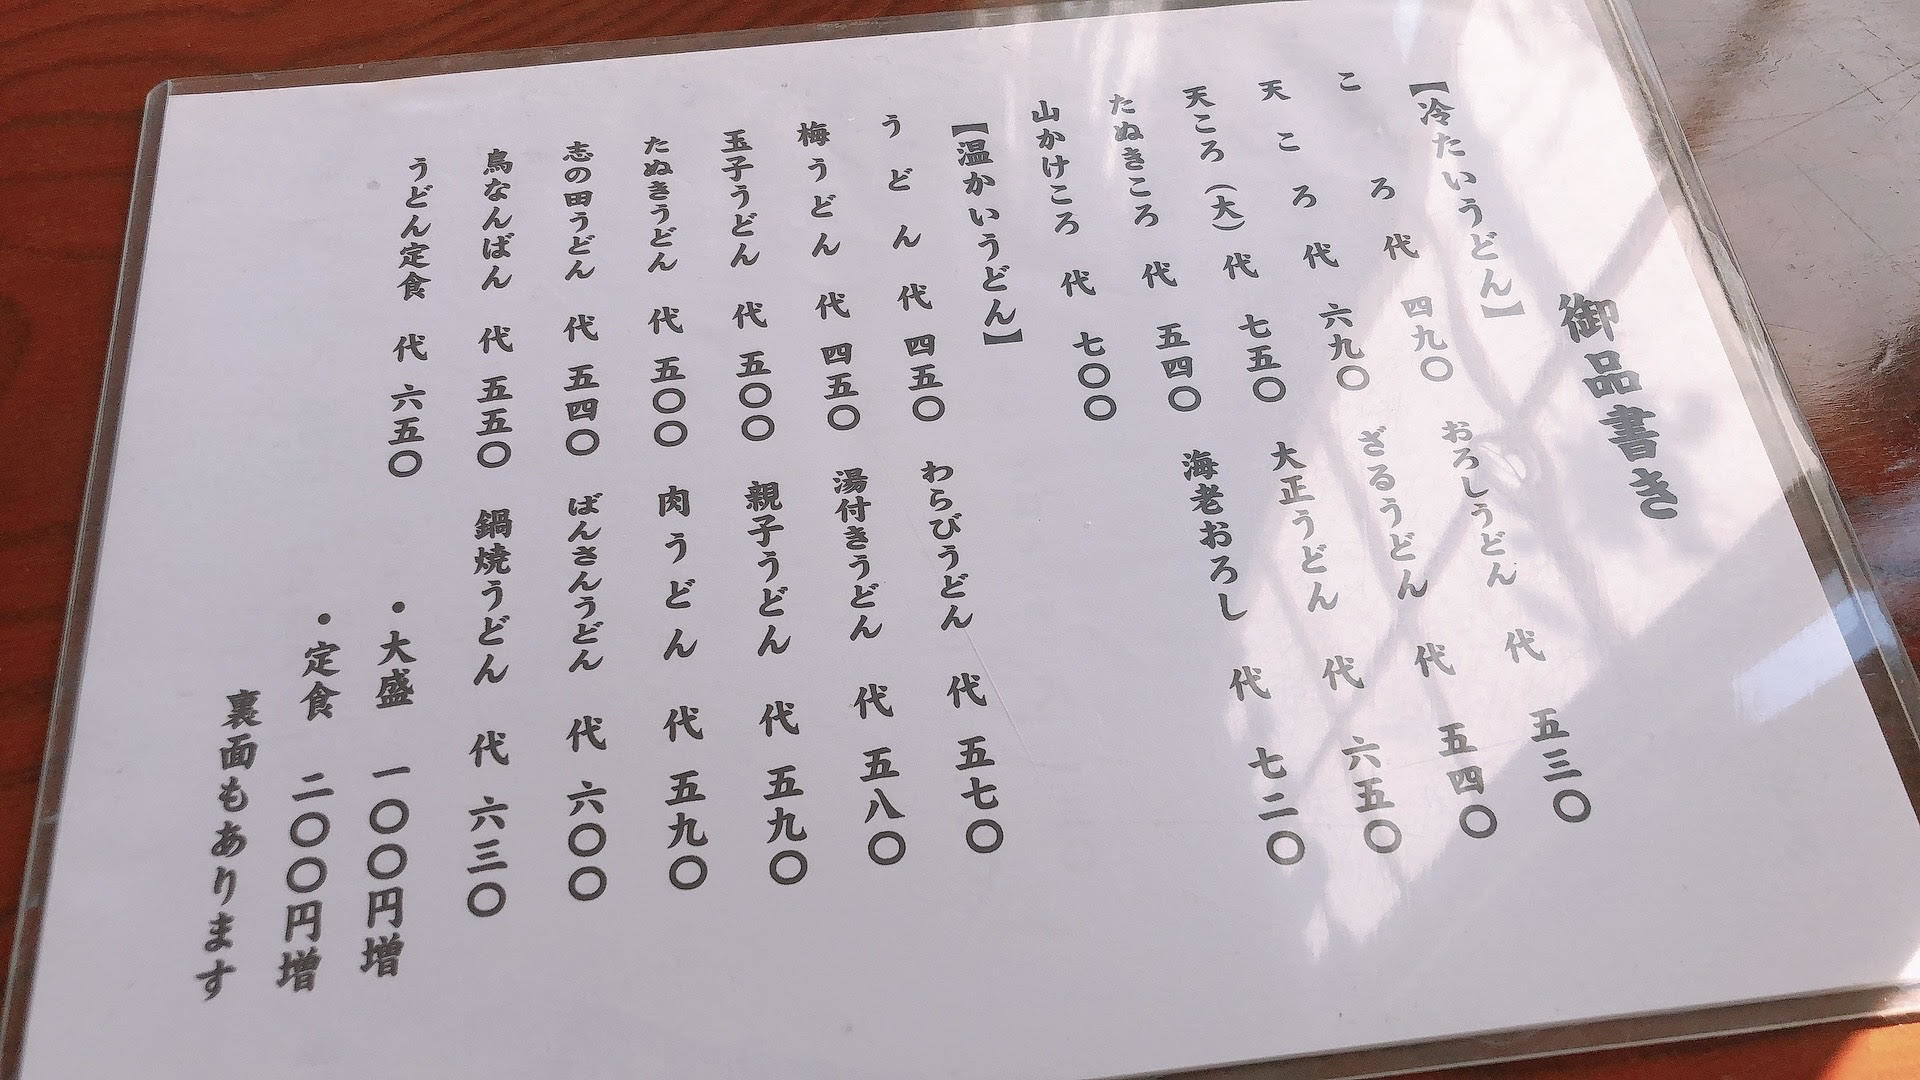 御品書き
【冷たいうどん】
ころ 代 四九〇
天ころ 代 六九〇
天ころ(大) 代 七五〇
たぬきころ 代 五四〇
山かけころ 代 七〇〇
おろしうどん 代 五三〇
ざるうどん 代 五四〇
大正うどん 代 六五〇
海老おろし 代 七二〇
【温かいうどん】
うどん 代 四五〇
梅うどん 代 四五〇
玉子うどん 代 五〇〇
たぬきうどん 代 五〇〇
志の田うどん 代 五四〇
鳥なんばん 代 五五〇
うどん定食 代 六五〇
わらびうどん 代 五七〇
湯付きうどん 代 五八〇
親子うどん 代 五九〇
肉うどん 代 五九〇
ばんさんうどん 代 六〇〇
鍋焼うどん 代 六三〇
・大盛 一〇〇円増
・定食 二〇〇円増
裏面もあります